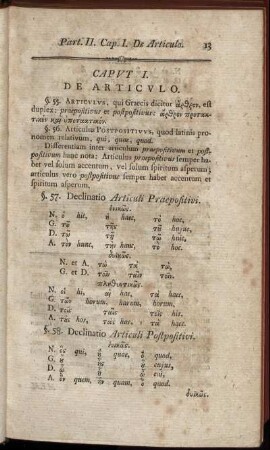 Part. II. Cap. I. De Articulo. 13
CAPVT I.
DE ARTICVLO.
§. 55. ARTICVLVS, qui Graecis dicitur ἄρθρον, est
duplex: praepositivus et postpositivus: ἄρθρον προτακ-
τικὸν καὶ ὑποτακτικόν.
§. 56. Articulus POSTPOSITIVVS, quod latinis pro-
nomen relativum, qui, quae, quod.
Differentiam inter articulum praepositivum et post-
positivum hunc nota: Articulus praepositivus semper ha-
bet vel solum accentum, vel solum spiritum asperum;
articulus vero postpositivus semper habet accentum et
spiritum asperum.
§. 57. Declinatio Articuli Praepositivi.
ἑνικῶς.
N. ὁ hic, ἡ haec, τὸ hoc,
G. τοῦ τῆς τοῦ hujus,
D. τῷ τῇ τῷ huic,
A. τὸν hunc, τὴν hanc, τὸ hoc.
δυϊκῶς.
N. et A. τὼ τὰ τὼ,
G. et D. τοῖν ταῖν τοῖν.
πληθυντικῶς.
N. οἱ hi, αἱ hae, τὰ haec,
G. τῶν horum, harum, horum,
D. τοῖς ταῖς τοῖς his,
A. τοὺς hos, τὰς has, τὰ haec.
§. 58. Declinatio Articuli Postpositivi.
ἑνικῶς.
N. ὃς qui, ἣ quae, ὃ quod,
G. οὗ ἧς οὗ cujus,
D. ᾧ ᾗ ᾧ cui,
A. ὃν quem, ἣν quam, ὃ quod.
δυϊκῶς.